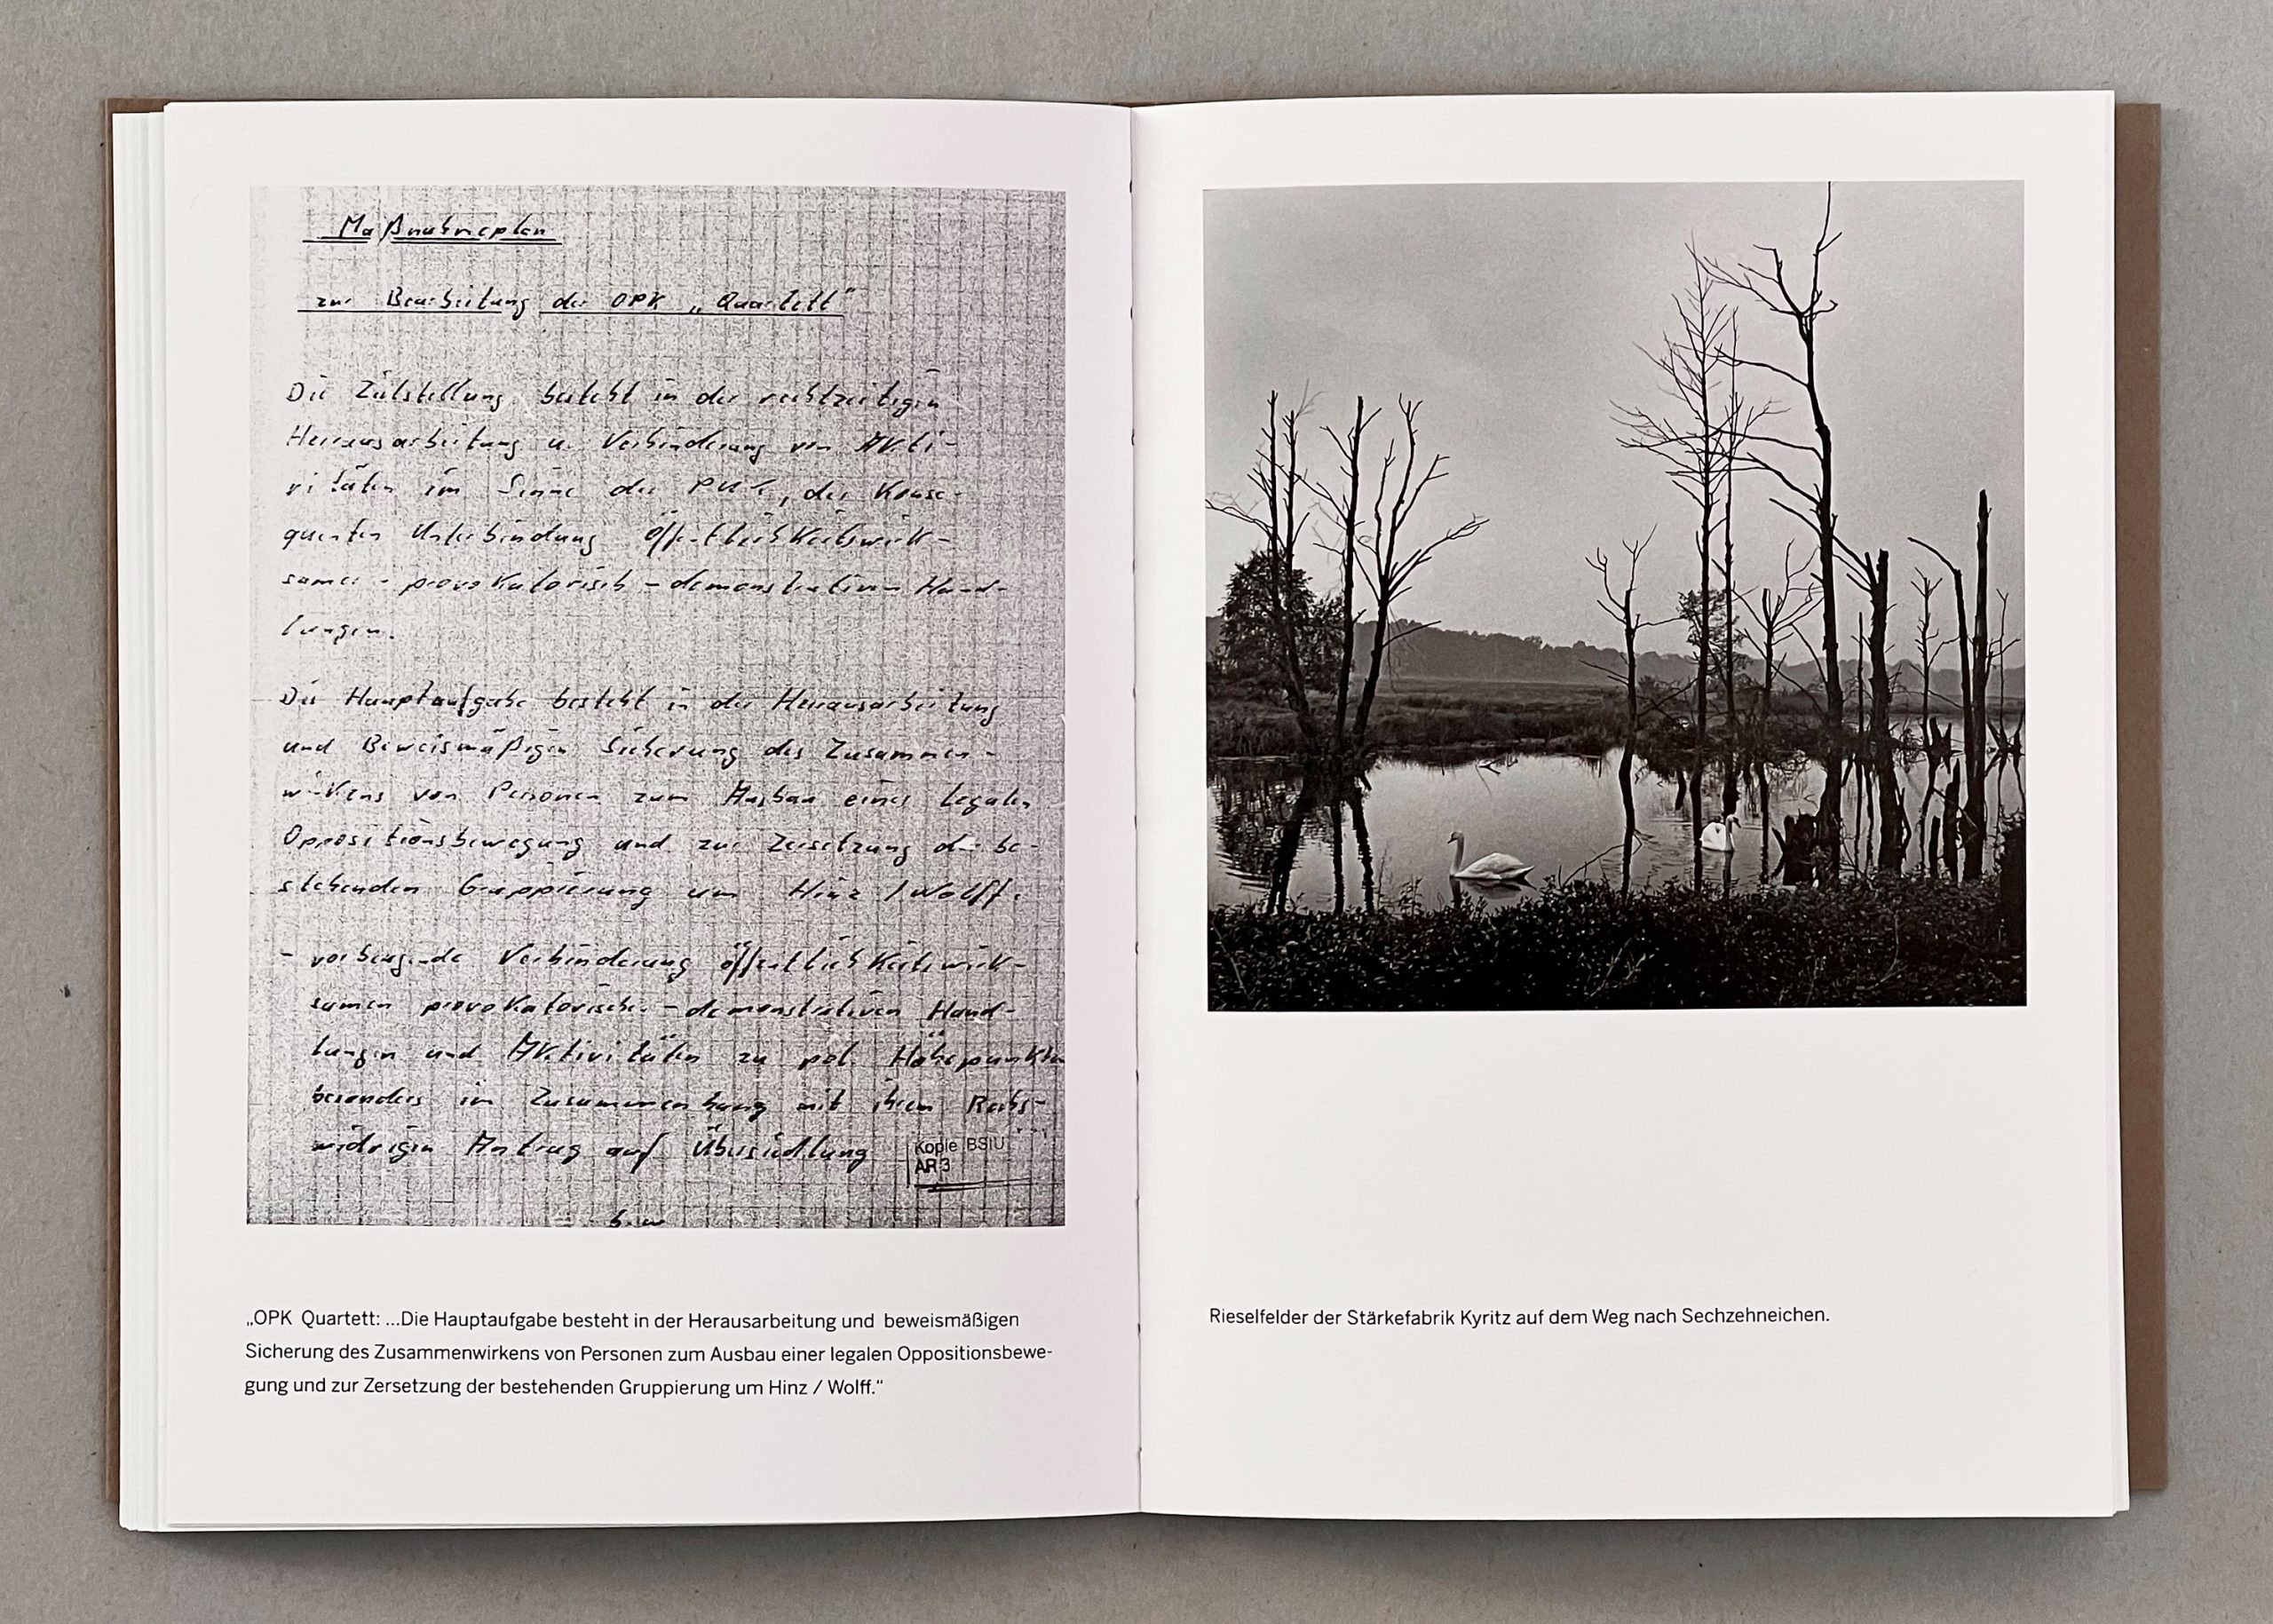 Maßnahmeplan
zur Bearbeitung der OPK „Quartett"
Die Zielstellung besteht in der rechtzeitigen
Herausarbeitung u. Verhinderung von Akti-
vitäten im Sinne der PUT, der Konse-
quenten Unterbindung öffentlichkeitswirk-
samer - provokatorisch - demonstrativen Hand-
lungen.
Die Hauptaufgabe besteht in der Herausarbeitung
und Beweismäßigen Sicherung des Zusammen-
wirkens von Personen zum Ausbau einer legalen
Oppositionsbewegung und zur Zersetzung der be-
stehenden Gruppierung um Hinz / Wolff.
- vorbeugende Verhinderung öffentlichkeitswirk-
samen provokatorisch - demonstrativen Hand-
lungen und Aktivitäten zu pol. Höhepunkten
besonders im Zusammenhang mit ihrem Rechts-
widrigen Antrag auf Übersiedlung
Kopie BStU
AR 3
„OPK Quartett: ...Die Hauptaufgabe besteht in der Herausarbeitung und beweismäßigen
Sicherung des Zusammenwirkens von Personen zum Ausbau einer legalen Oppositionsbewe-
gung und zur Zersetzung der bestehenden Gruppierung um Hinz / Wolff."
Rieselfelder der Stärkefabrik Kyritz auf dem Weg nach Sechzehneichen.